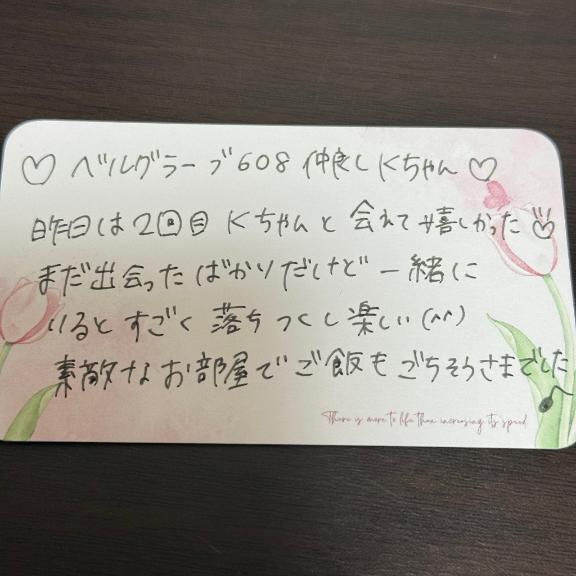 ♡ ベルグラーブ608 仲良しKちゃん ♡
昨日は2回目 Kちゃんと 会れて嬉しかった
まだ出会ったばかりだけど 一緒に
いるとすごく 落ちつくし楽しい(^^)
素敵なお部屋でご飯もごちそうさまでした
There is more to life than increasing its speed